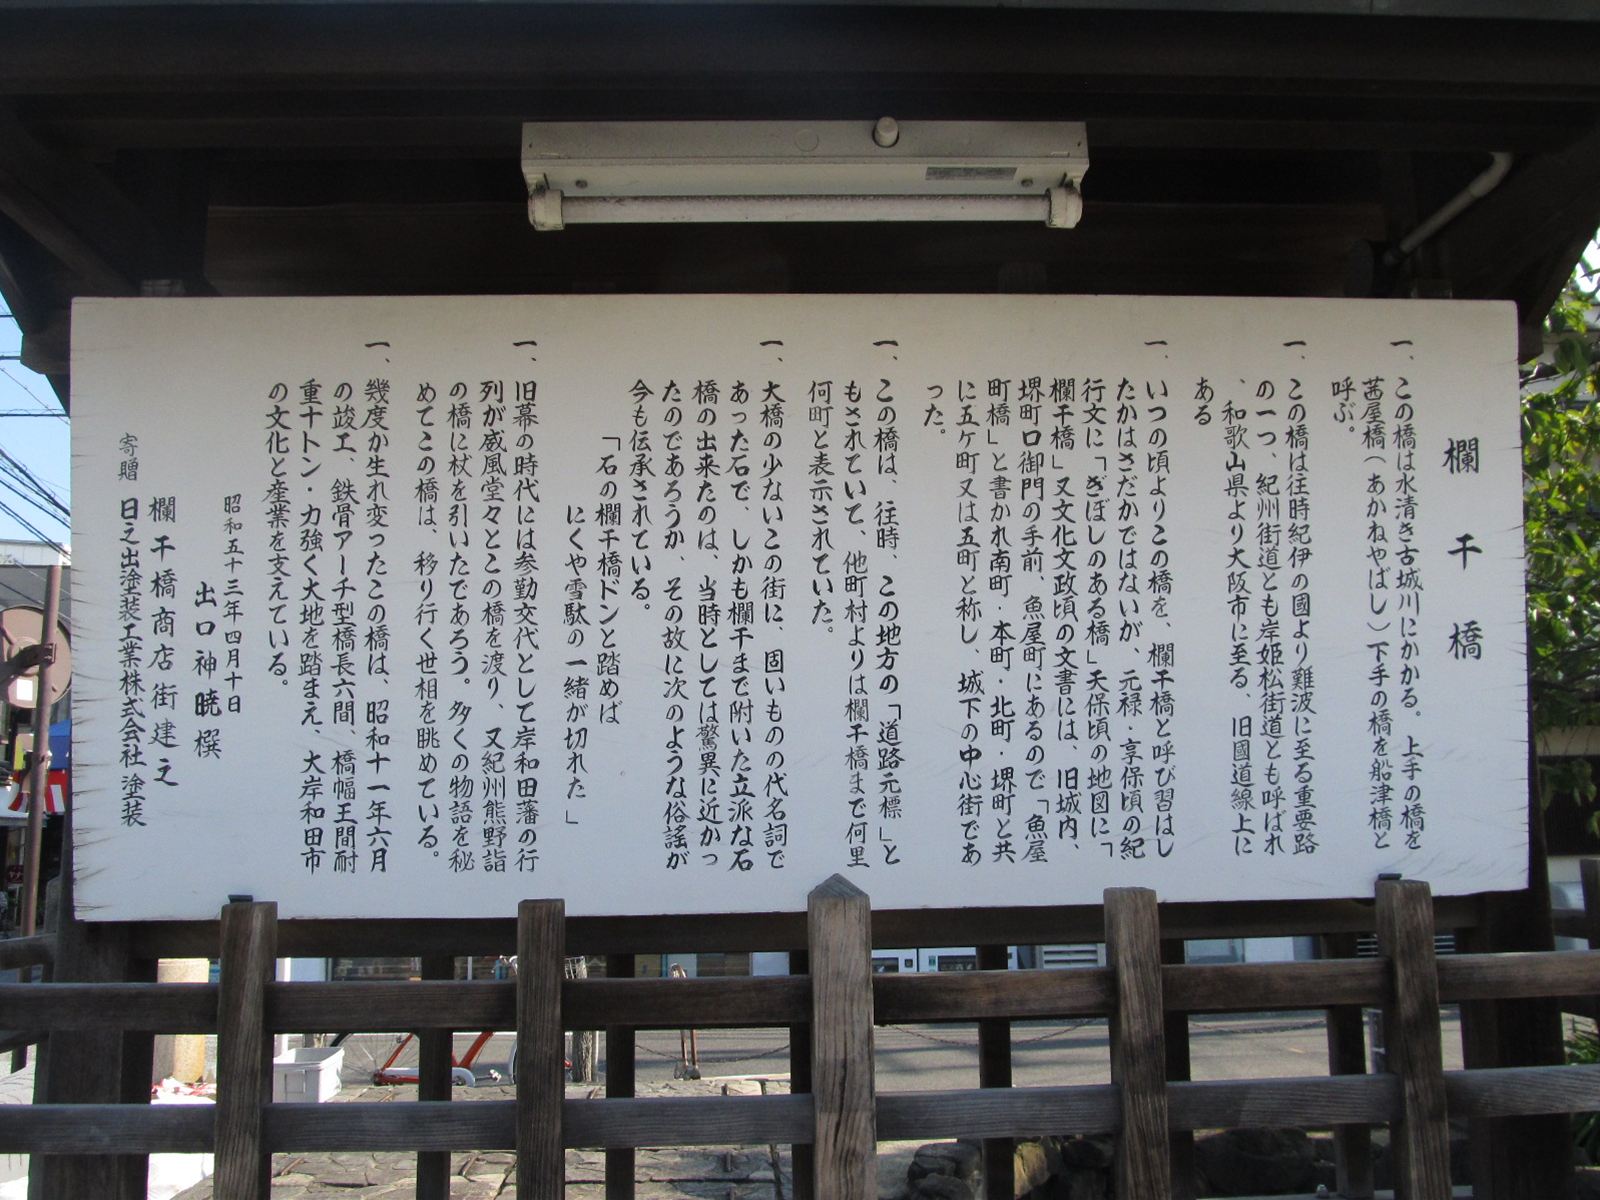 欄干橋
一、この橋は水清き古城川にかかる。上手の橋を
茜屋橋（あかねやばし）下手の橋を船津橋と
呼ぶ。
一、この橋は往時紀伊の國より難波に至る重要路
の一つ、紀州街道とも岸姫松街道とも呼ばれ
、和歌山県より大阪市に至る、旧國道線上に
ある
一、いつの頃よりこの橋を、欄干橋と呼び習はし
たかはさだかではないが、元禄・享保頃の紀
行文に「ぎぼしのある橋」天保頃の地図に「
欄干橋」又文化文政頃の文書には、旧城内、
堺町口御門の手前、魚屋町にあるので「魚屋
町橋」と書かれ南町・本町・北町・堺町と共
に五ヶ町又は五町と称し、城下の中心街であ
った。
一、この橋は、往時、この地方の「道路元標」と
もされていて、他町村よりは欄干橋まで何里
何町と表示されていた。
一、大橋の少ないこの街に、固いものの代名詞で
あった石で、しかも欄干まで附いた立派な石
橋の出来たのは、当時としては驚異に近かっ
たのであろうか、その故に次のような俗謡が
今も伝承されている。
「石の欄干橋ドンと踏めば
にくや雪駄の一緒が切れた」
一、旧幕の時代には参勤交代として岸和田藩の行
列が威風堂々とこの橋を渡り、又紀州熊野詣
の橋に杖を引いたであろう。多くの物語を秘
めてこの橋は、移り行く世相を眺めている。
一、幾度か生れ変ったこの橋は、昭和十一年六月
の竣工、鉄骨アーチ型橋長六間、橋幅王間耐
重十トン・力強く大地を踏まえ、大岸和田市
の文化と産業を支えている。
昭和五十三年四月十日
出口神暁撰
欄干橋商店街建之
寄贈 日之出塗装工業株式会社塗装